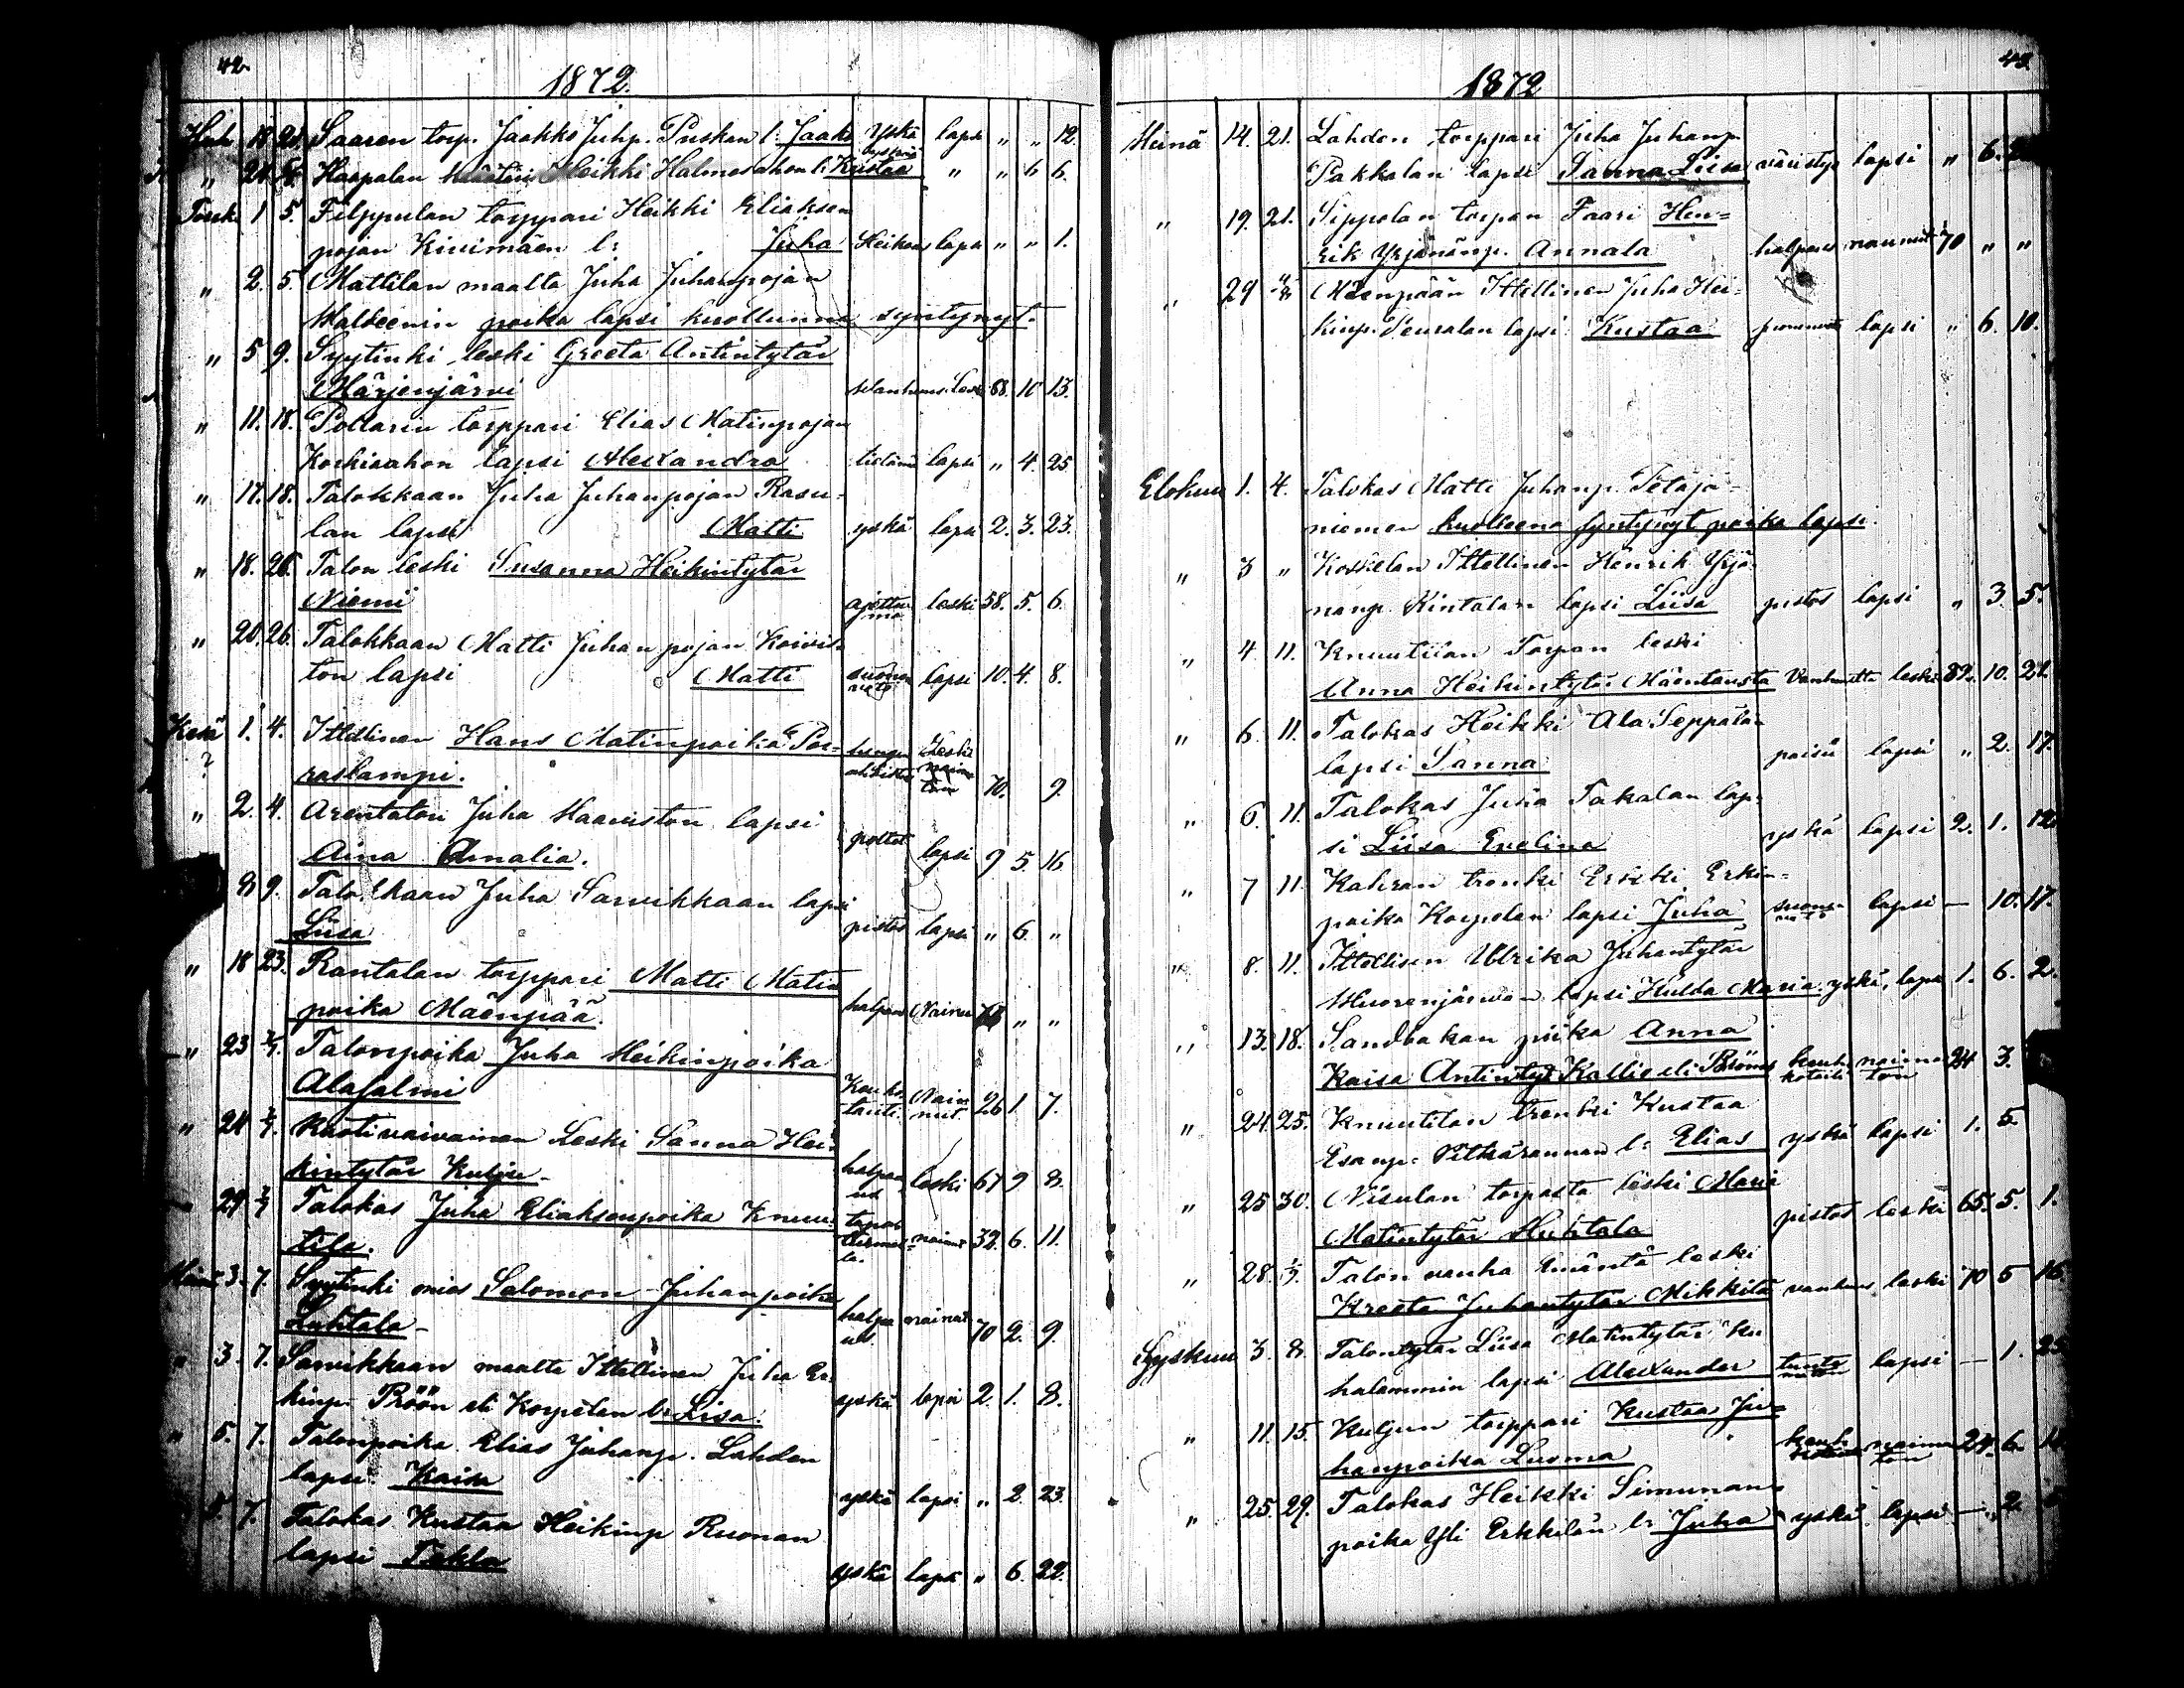 42.
1872.
Huh 18 21. Saaren torp. Jaakko Juhp. Puskan l: Jaako yskä lapsi " " 12.
" 24 Haapalan Heikki Halmesahon l: Kustaa " " 6 6.
Touk 1 5. Filppulan torppari Heikki Eliaksen
pojan Kivimäen l: Juha Heikous lapsi " " 1.
" 2. 5. Mattilan maalta Juha Juhanpojan
poika lapsi kuolluna syntynyt.
" 5 9. Syytinki leski Greeta Antintytär
Märjenjärvi leski 68. 10 13.
" 11. 18. Pollarin torppari Elias Matinpojan
Koskisahon lapsi Alexandra lapsi " 4. 25
" 17. 18. Talokkaan Juha Juhanpojan Rasu-
lan lapsi Matti yskä lapsi 2. 3. 23.
" 18. 26. Talon leski Susanna Heikintytär
Niemi ajettu- leski 58. 5. 6.
ma
" 20. 26. Talokkaan Matti Juhanpojan Koivis-
ton lapsi Matti suonen lapsi 10. 4. 8.
veto
Kesä 1. 4. Ittellinen Hans Matinpoika Po-
?
raslampi. 70. 9.
" 2. 4. Arentaton Juha Haaviston lapsi
Aina Amalia. poltet lapsi 9 5. 16
8 9. Talokkaan Juha Sarvikkaan lapsi
Liisa pistos lapsi " 6. "
" 18 23. Rantalan torppari Matti Matin
poika Mäenpää. halpaus Nainu " "
" 23 2/7. Talonpoika Juha Heikinpoika
Alasalmi Keuhko Nain 26 1. 7.
tauti. nut
" 24 2/7. Ruotivaivainen Leski Sanna Hei-
kintytär Kulju halpa- leski 67 9 8.
us
29 2/7 Talokas Juha Eliaksenpoika Knuu-
tila. nainut 32. 6. 11.
3. 7. Syytinki mies Salomon Juhanpoika
Luhtala halpa nainut 70 2. 9.
us.
" 3. 7. Sarvikkaan maalta Ittellinen Juha Er-
kinp. Pröön eli Korpelan l: Liisa. yskä lapsi 2. 1. 8.
" 5. 7. Talonpoika Elias Juhanp. Lahden
lapsi Kaisa yskä lapsi " 2. 23.
5. 7. Talokas Kustaa Heikinp Ruonan
lapsi Tekla yskä lapsi " 6. 22.
43.
1872
Heinä 14. 21. Lahden torppari Juha Juhanp.
Pakkalan lapsi Sanna Liisa väristys lapsi " 6.
" 19. 21. Sippolan torpan Faari Hen-
rik Yrjänänp. Annala halpaus nainut 70 " "
" 29 4/8 Mäenpään Ittellinen Juha Hei-
kinp. Seuralan lapsi Kustaa lapsi " 6. 10.
Elokuu 1. 4. Talokas Matti Juhanp. Petäjä-
niemen kuolleena syntynyt poika lapsi.
" 3 " Koskelan Ittellinen Henrik Yrjä-
nänp. Rintalan lapsi Liisa pistos lapsi " 3. 5.
" 4 11. Knuutilan Torpan leski
Anna Heikintytär Mäentausta Vanhuutta leski 82. 10. 21.
" 6. 11. Talokas Heikki Ala Seppälän
lapsi Sanna paisu lapsi " 2. 17.
" 6. 11. Talokas Juha Takalan lap-
si Liisa Evelina yskä lapsi 2. 1. 12
" 7 11. Kahran trenki Erkki Erkin-
poika Korpelan lapsi Juha suonen- lapsi — 10. 17.
veto
" 8. 11. Ittellisen Ulrika Juhantytär
Vuorenjärven lapsi Hulda Maria yskä, lapsi 1. 6. 2.
" 13. 18. Sandbakan piika Anna
Kaisa Antintyt Kallio eli naima- 24 3.
ton
" 24. 25. Knuutilan trenki Kustaa
Esanp. Pitkärannan l: Elias yskä lapsi 1. 5.
" 25 30. Nisulan torpasta leski Maria
Matintytär Huhtala pistos leski 65. 5. 1.
" 28. 1/9. Talon vanha Emäntä leski
Kreeta Juhantytär Mikkilä vanhuus leski 70 5 16
Syskuu 3. 8. Talontytär Liisa Matintytär Ku-
halammin lapsi Alexander tunte- lapsi — 1. 25
maton
" 11. 15. Kuljun torppari Kustaa Ju-
hanpoika Luoma naima- 24. 6.
ton
" 25. 29. Talokas Heikki Simunan-
poika Yli Erkkilän l: Juha yskä lapsi — 2.